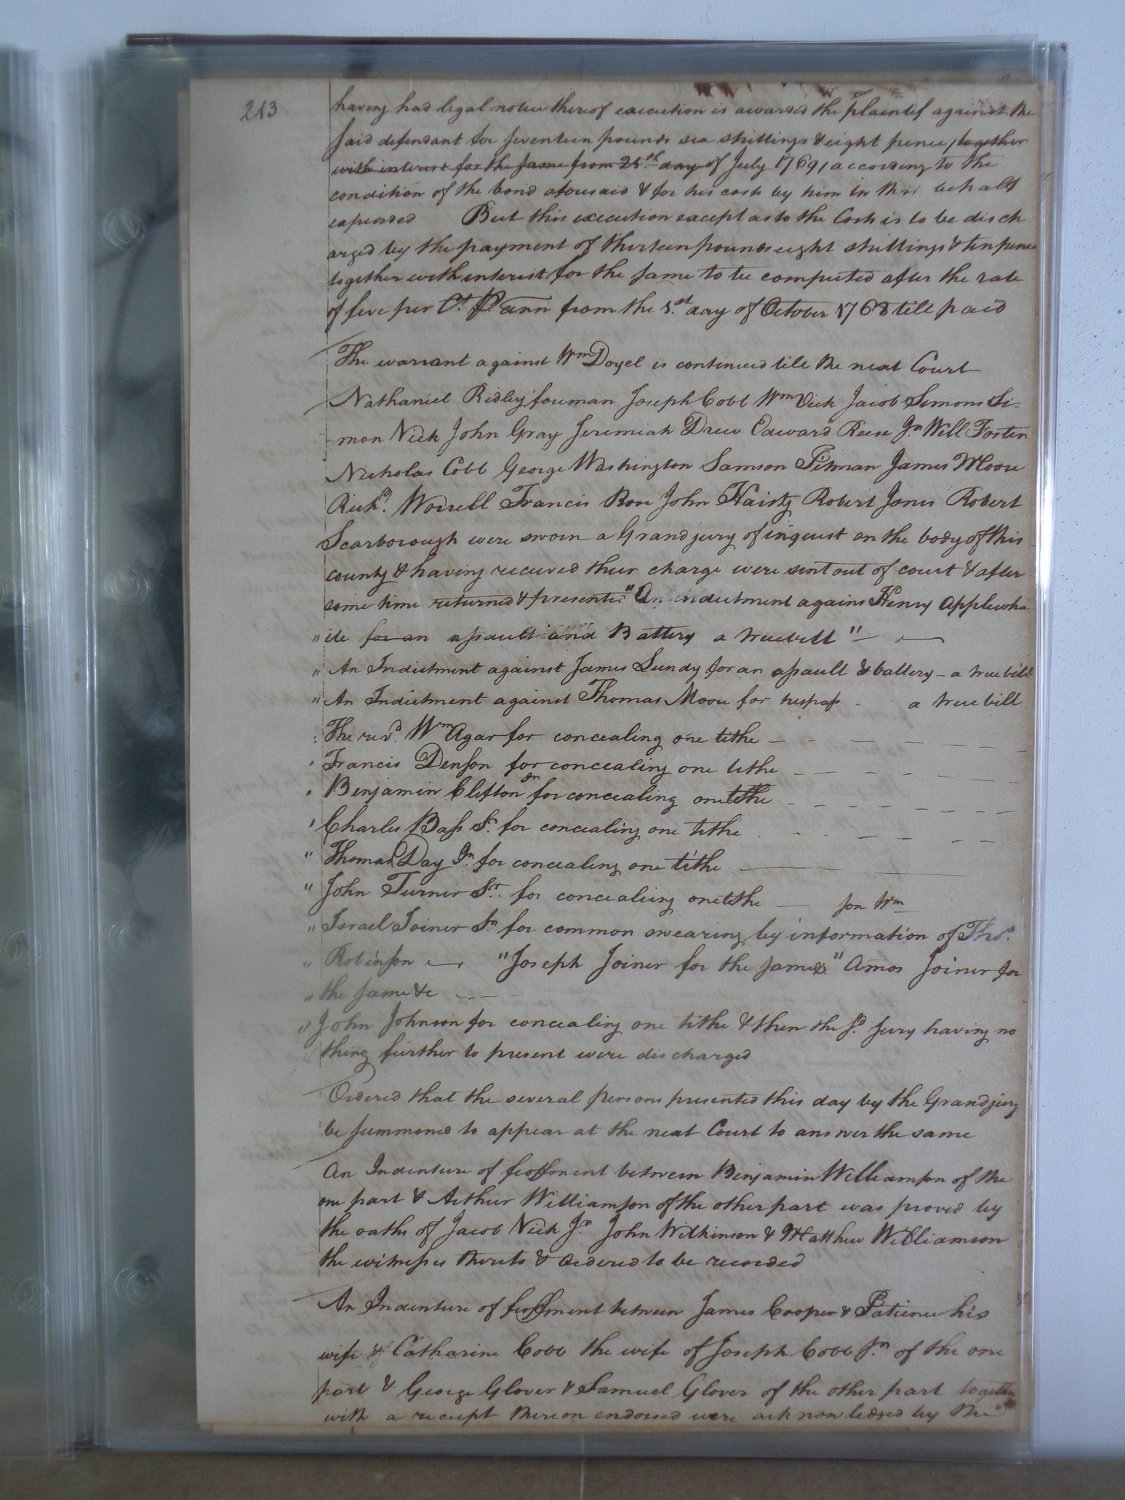 213
having had legal notice thereof execution is awarded the plaintif against the
said defendant for seventeen pounds six shillings & eight pence, together
with interest for the same from 25th day of July 1769, according to the
condition of the bond aforesaid & for his costs by him in this behalf
expended But this execution except as to the Costs is to be disch
arged by the payment of thirteen pounds eight shillings & ten pence
together with interest for the same to be computed after the rate
of five per Ct. P ann from the 1st day of October 1768 till paid
The warrant against Wm Doyel is continued till the next Court
Nathaniel Ridley foreman Joseph Cobb Wm Vick Jacob Simons Si-
mon Vick John Gray Jeremiah Drew Edward Reese Jn Will Foster
Nicholas Cobb George Washington Samson Pitman James Moore
Richd. Worrell Francis Rose John Hairty Robert Jones Robert
Scarborough were sworn a Grand jury of inquest on the body of this
county & having received their charge were sent out of court & after
some time returned & presented "An indictment against Henry Applewha
" ite for an assault and Battery a true bill "
" An Indictment against James Lundy for an assault & battery - a true bill
" An Indictment against Thomas Moore for trespass - a true bill
" The revd. Wm Agar for concealing one tithe
" Francis Denson for concealing one tithe
" Benjamin Clifton Jn for concealing one tithe
" Charles Bass Sr. for concealing one tithe
" Thomas Day Jn. for concealing one tithe
" John Turner Sr. for concealing one tithe son Wm
" Israel Joiner Sn for common swearing by information of Thos.
" Robinson "Joseph Joiner for the same & "Amos Joiner for
" the same &c
" John Johnson for concealing one tithe & then the sd. Jury having no
thing further to present were discharged
Ordered that the several persons presented this day by the Grand jury
be summoned to appear at the next Court to answer the same
An Indenture of feoffment between Benjamin Williamson of the
one part & Arthur Williamson of the other part was proved by
the oaths of Jacob Vick Jn John Wilkinson & Matthew Williamson
the witnesses thereto & ordered to be recorded
An Indenture of feoffment between James Cooper & Patience his
wife & Catharine Cobb the wife of Joseph Cobb Jn of the one
part & George Glover & Samuel Glover of the other part together
with a receipt thereon endorsed were acknowledged by the